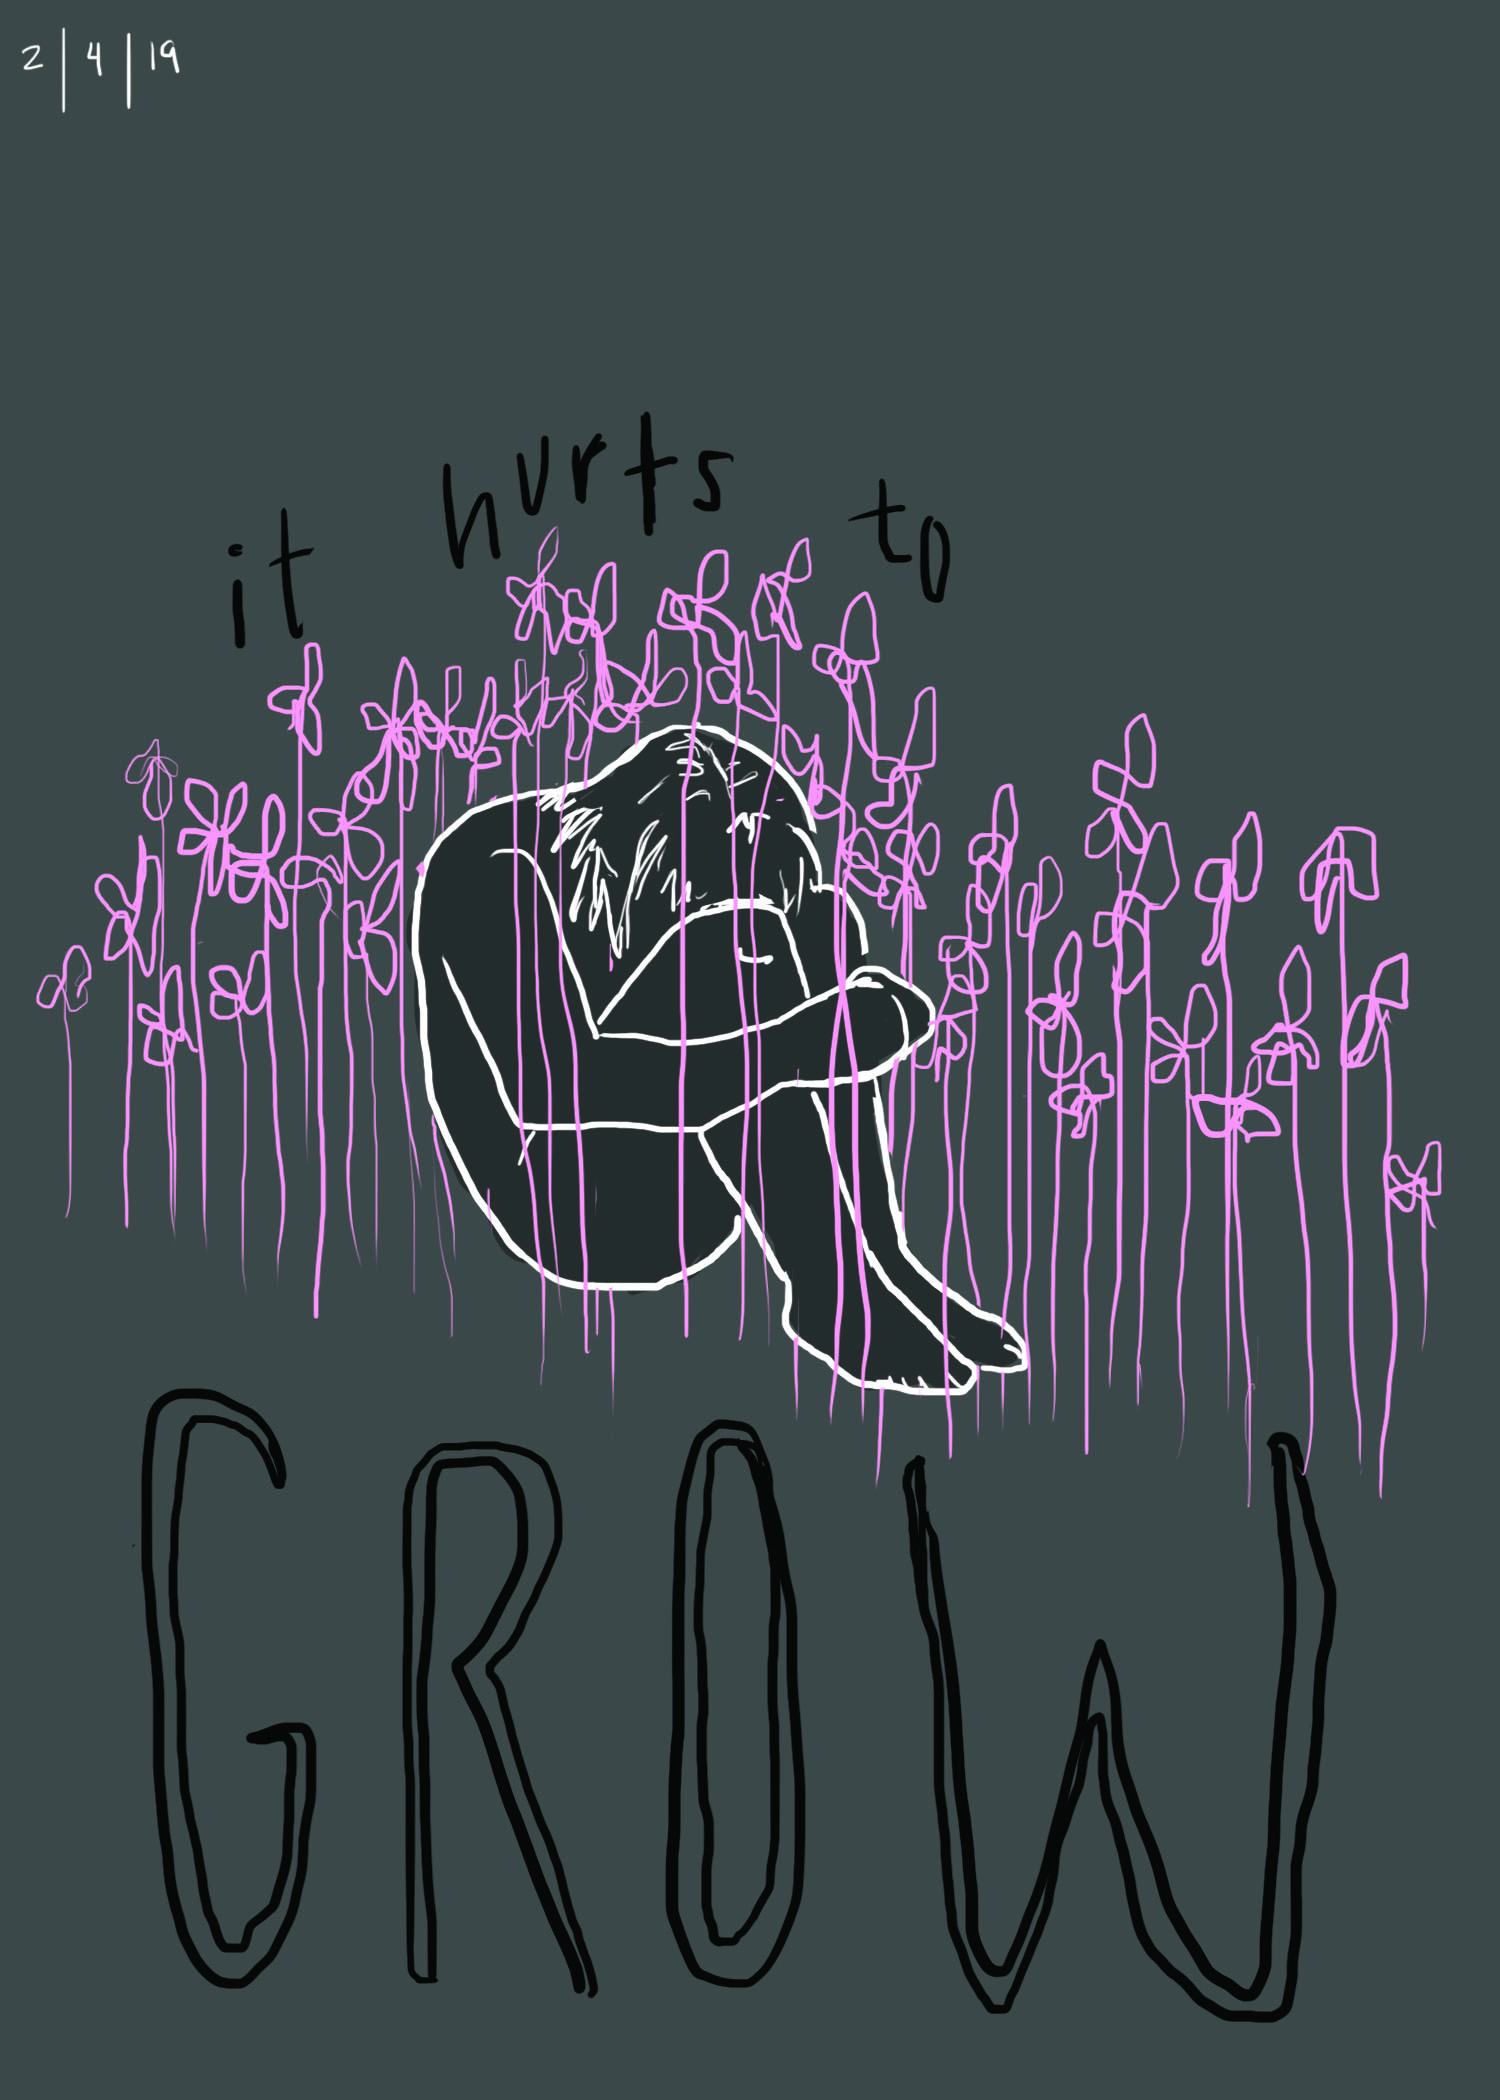 2|4|19
it hurts to
GROW